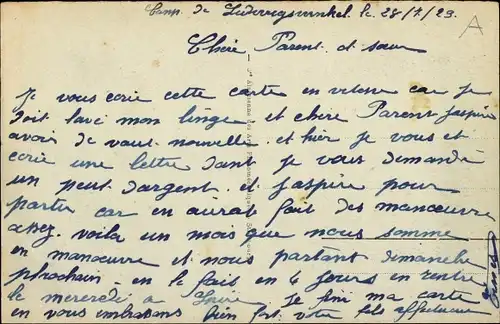 Camp de Ludwigswinkel le 28/7/23
A
Chère Parent et sœur
Je vous ecrie cette carte en vitesse car je
doit lavé mon linge et chere Parent jaspire
avoir de vaut nouvelle et hier je vous et
ecrie une lettre dant je vous demandé
un peut dargent et jaspire pour
partir car en aurat fait des manœuvre
assez voila un mois que nous somme
en manœuvre et nous partant dimanche
prochain en le fait en 4 jours en rentre
le mercredé a Je fini ma carte
en vous embrassans bien fort votre fils